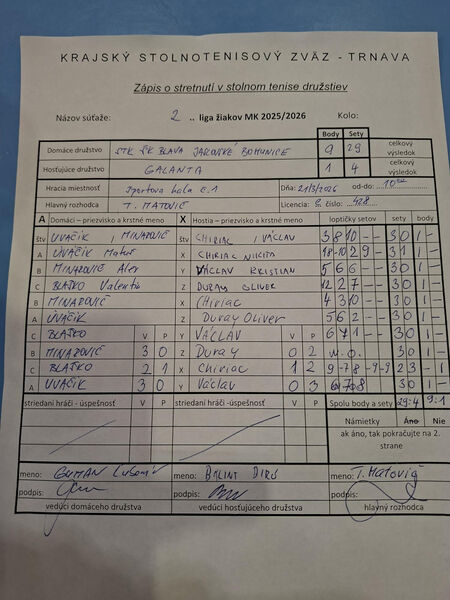 KRAJSKÝ STOLNOTENISOVÝ ZVÄZ - TRNAVA
Zápis o stretnutí v stolnom tenise družstiev
Názov súťaže: 2 .. liga žiakov MK 2025/2026 Kolo:
Body Sety
Domáce družstvo STK ŠK BLAVA JASLOVSKÉ BOHUNICE 9 29 celkový výsledok
Hosťujúce družstvo GALANTA 1 4 celkový výsledok
Hracia miestnosť Športova hala č.1 Dňa: 21/3/2026 od-do: 10
Hlavný rozhodca T. MATOVIČ Licencia: č. číslo: 428
A Domáci – priezvisko a krstné meno X Hostia – priezvisko a krstné meno loptičky setov sety body
štv UVAČIK , MINAROVIČ štv CHIRIAC , VÁCLAV 3 8 10 - - 3 0 1 -
A UVAČIK X CHIRIAC NIKITA 18 -10 2 9 - 3 1 1 -
B MINAROVIČ Alex Y VÁCLAV KRISTIAN 5 6 6 - - 3 0 1 -
C BLAŠKO Valentin Z DURAY OLIVER 12 2 7 - - 3 0 1 -
B MINAROVIČ X Chiriac 4 3 10 - - 3 0 1 -
A UVAČIK Z Duray Oliver 5 6 2 - - 3 0 1 -
C BLAŠKO V P Y VÁCLAV V P 6 7 1 - - 3 0 1 -
B MINAROVIČ 3 0 Z Duray 0 2 w.o. 3 0 1 -
C BLAŠKO 2 1 X Chiriac 1 2 9 -7 8 -9 -9 2 3 - 1
A UVAČIK 3 0 Y Václav 0 3 8 3 0 1 -
striedaní hráči - úspešnosť V P striedaní hráči - úspešnosť V P Spolu body a sety 29:4 9:1
Námietky Áno Nie
ak áno, tak pokračujte na 2. strane
meno: meno: BALINT meno: T. Matovič
podpis: podpis: podpis:
vedúci domáceho družstva vedúci hosťujúceho družstva hlavný rozhodca